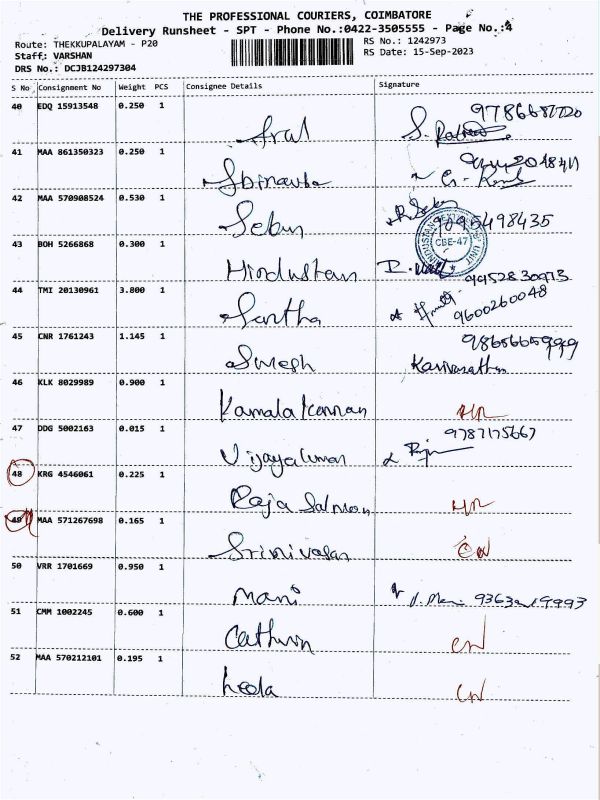 THE PROFESSIONAL COURIERS, COIMBATORE
Delivery Runsheet - SPT - Phone No.:0422-3505555 - Page No.:4
Route: THEKKUPALAYAM - P20
RS No.: 1242973
Staff: VARSHAN
RS Date: 15-Sep-2023
DRS No.: DCJB124297304
S No Consignment No Weight PCS Consignee Details Signature
40 EDQ 15913548 0.250 1
41 MAA 861350323 0.250 1
42 MAA 570908524 0.530 1
Sebin 9095498435
43 BOH 5266868 0.300 1
CBE-47
Hindustan
44 TMI 20130961 3.800 1
9952830973
Santha 9600260048
45 CNR 1761243 1.145 1
Suresh
46 KLK 8029989 0.900 1
Kamala Kannan
47 DDG 5002163 0.015 1
9787175667
Vijayakumar
48 KRG 4546061 0.225 1
Raja Salmon
49 MAA 571267698 0.165 1
Srinivasan
50 VRR 1701669 0.950 1
Mani
51 CMM 1002245 0.600 1
52 MAA 570212101 0.195 1
Leela